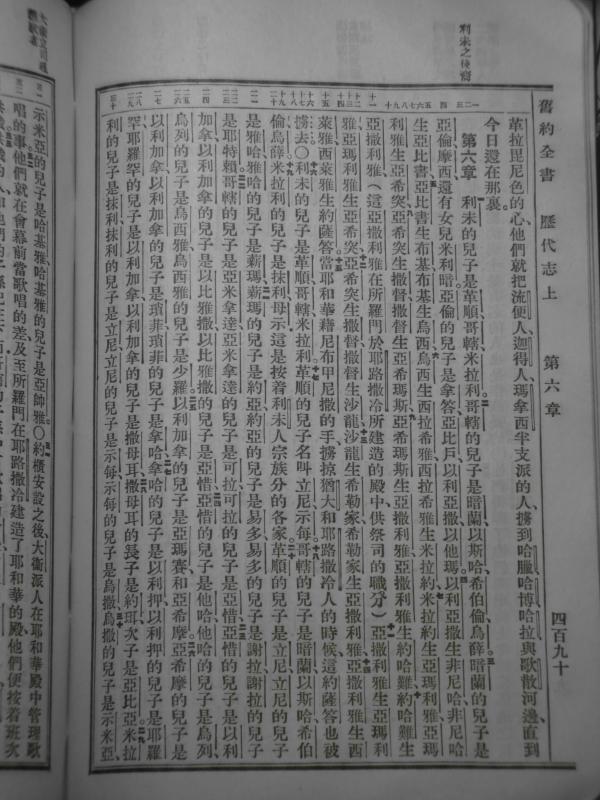 舊約全書　歷代志上　第六章　四百九十
利未之後裔
革拉毘尼色的心他們就把流便人迦得人瑪拿西半支派的人擄到哈臘哈博哈拉與歌散河邊直到
今日還在那裏
第六章　利未的兒子是革順哥轄米拉利哥轄的兒子是暗蘭以斯哈希伯倫烏薛暗蘭的兒子是
亞倫摩西還有女兒米利暗亞倫的兒子是拿答亞比戶以利亞撒以他瑪以利亞撒生非尼哈非尼哈
生亞比書亞比書生布基布基生烏西烏西生西拉希雅西拉希雅生米拉約米拉約生亞瑪利亞亞瑪
利雅生亞希突亞希突生撒督撒督生亞希瑪斯亞希瑪斯生亞撒利雅亞撒利雅生約哈難約哈難生
亞撒利雅（這亞撒利雅在所羅門於耶路撒冷所建造的殿中供祭司的職分）亞撒利雅生亞瑪利
雅亞瑪利雅生亞希突亞希突生撒督撒督生沙龍沙龍生希勒家希勒家生亞撒利雅亞撒利雅生西
萊雅西萊雅生約薩答當耶和華藉尼布甲尼撒的手擄掠猶大和耶路撒冷人的時候這約薩答也被
擄去〇利未的兒子是革順哥轄米拉利革順的兒子名叫立尼示每哥轄的兒子是暗蘭以斯哈希伯
倫烏薛米拉利的兒子是抹利母示這是按着利未人宗族分的各家革順的兒子是立尼立尼的兒子
是雅哈雅哈的兒子是薪瑪薪瑪的兒子是約亞約亞的兒子是易多易多的兒子是謝拉謝拉的兒子
是耶特賴哥轄的兒子是亞米拿達亞米拿達的兒子是可拉可拉的兒子是亞惜亞惜的兒子是以利
加拿以利加拿的兒子是以比雅撒以比雅撒的兒子是亞惜亞惜的兒子是他哈他哈的兒子是烏列
烏列的兒子是烏西雅烏西雅的兒子是少羅以利加拿的兒子是亞瑪賽和亞希摩亞希摩的兒子是
以利加拿以利加拿的兒子是瑣菲瑣菲的兒子是拿哈拿哈的兒子是以利押以利押的兒子是耶羅
罕耶羅罕的兒子是以利加拿以利加拿的兒子是撒母耳撒母耳的長子是約耳次子是亞比亞米拉
利的兒子是抹利抹利的兒子是立尼立尼的兒子是示每示每的兒子是烏撒烏撒的兒子是示米亞
示米亞的兒子是哈基雅哈基雅的兒子是亞帥雅〇約櫃安設之後大衞派人在耶和華殿中管理歌
唱的事他們就在會幕前當歌唱的差及至所羅門在耶路撒冷建造了耶和華的殿他們便按着班次